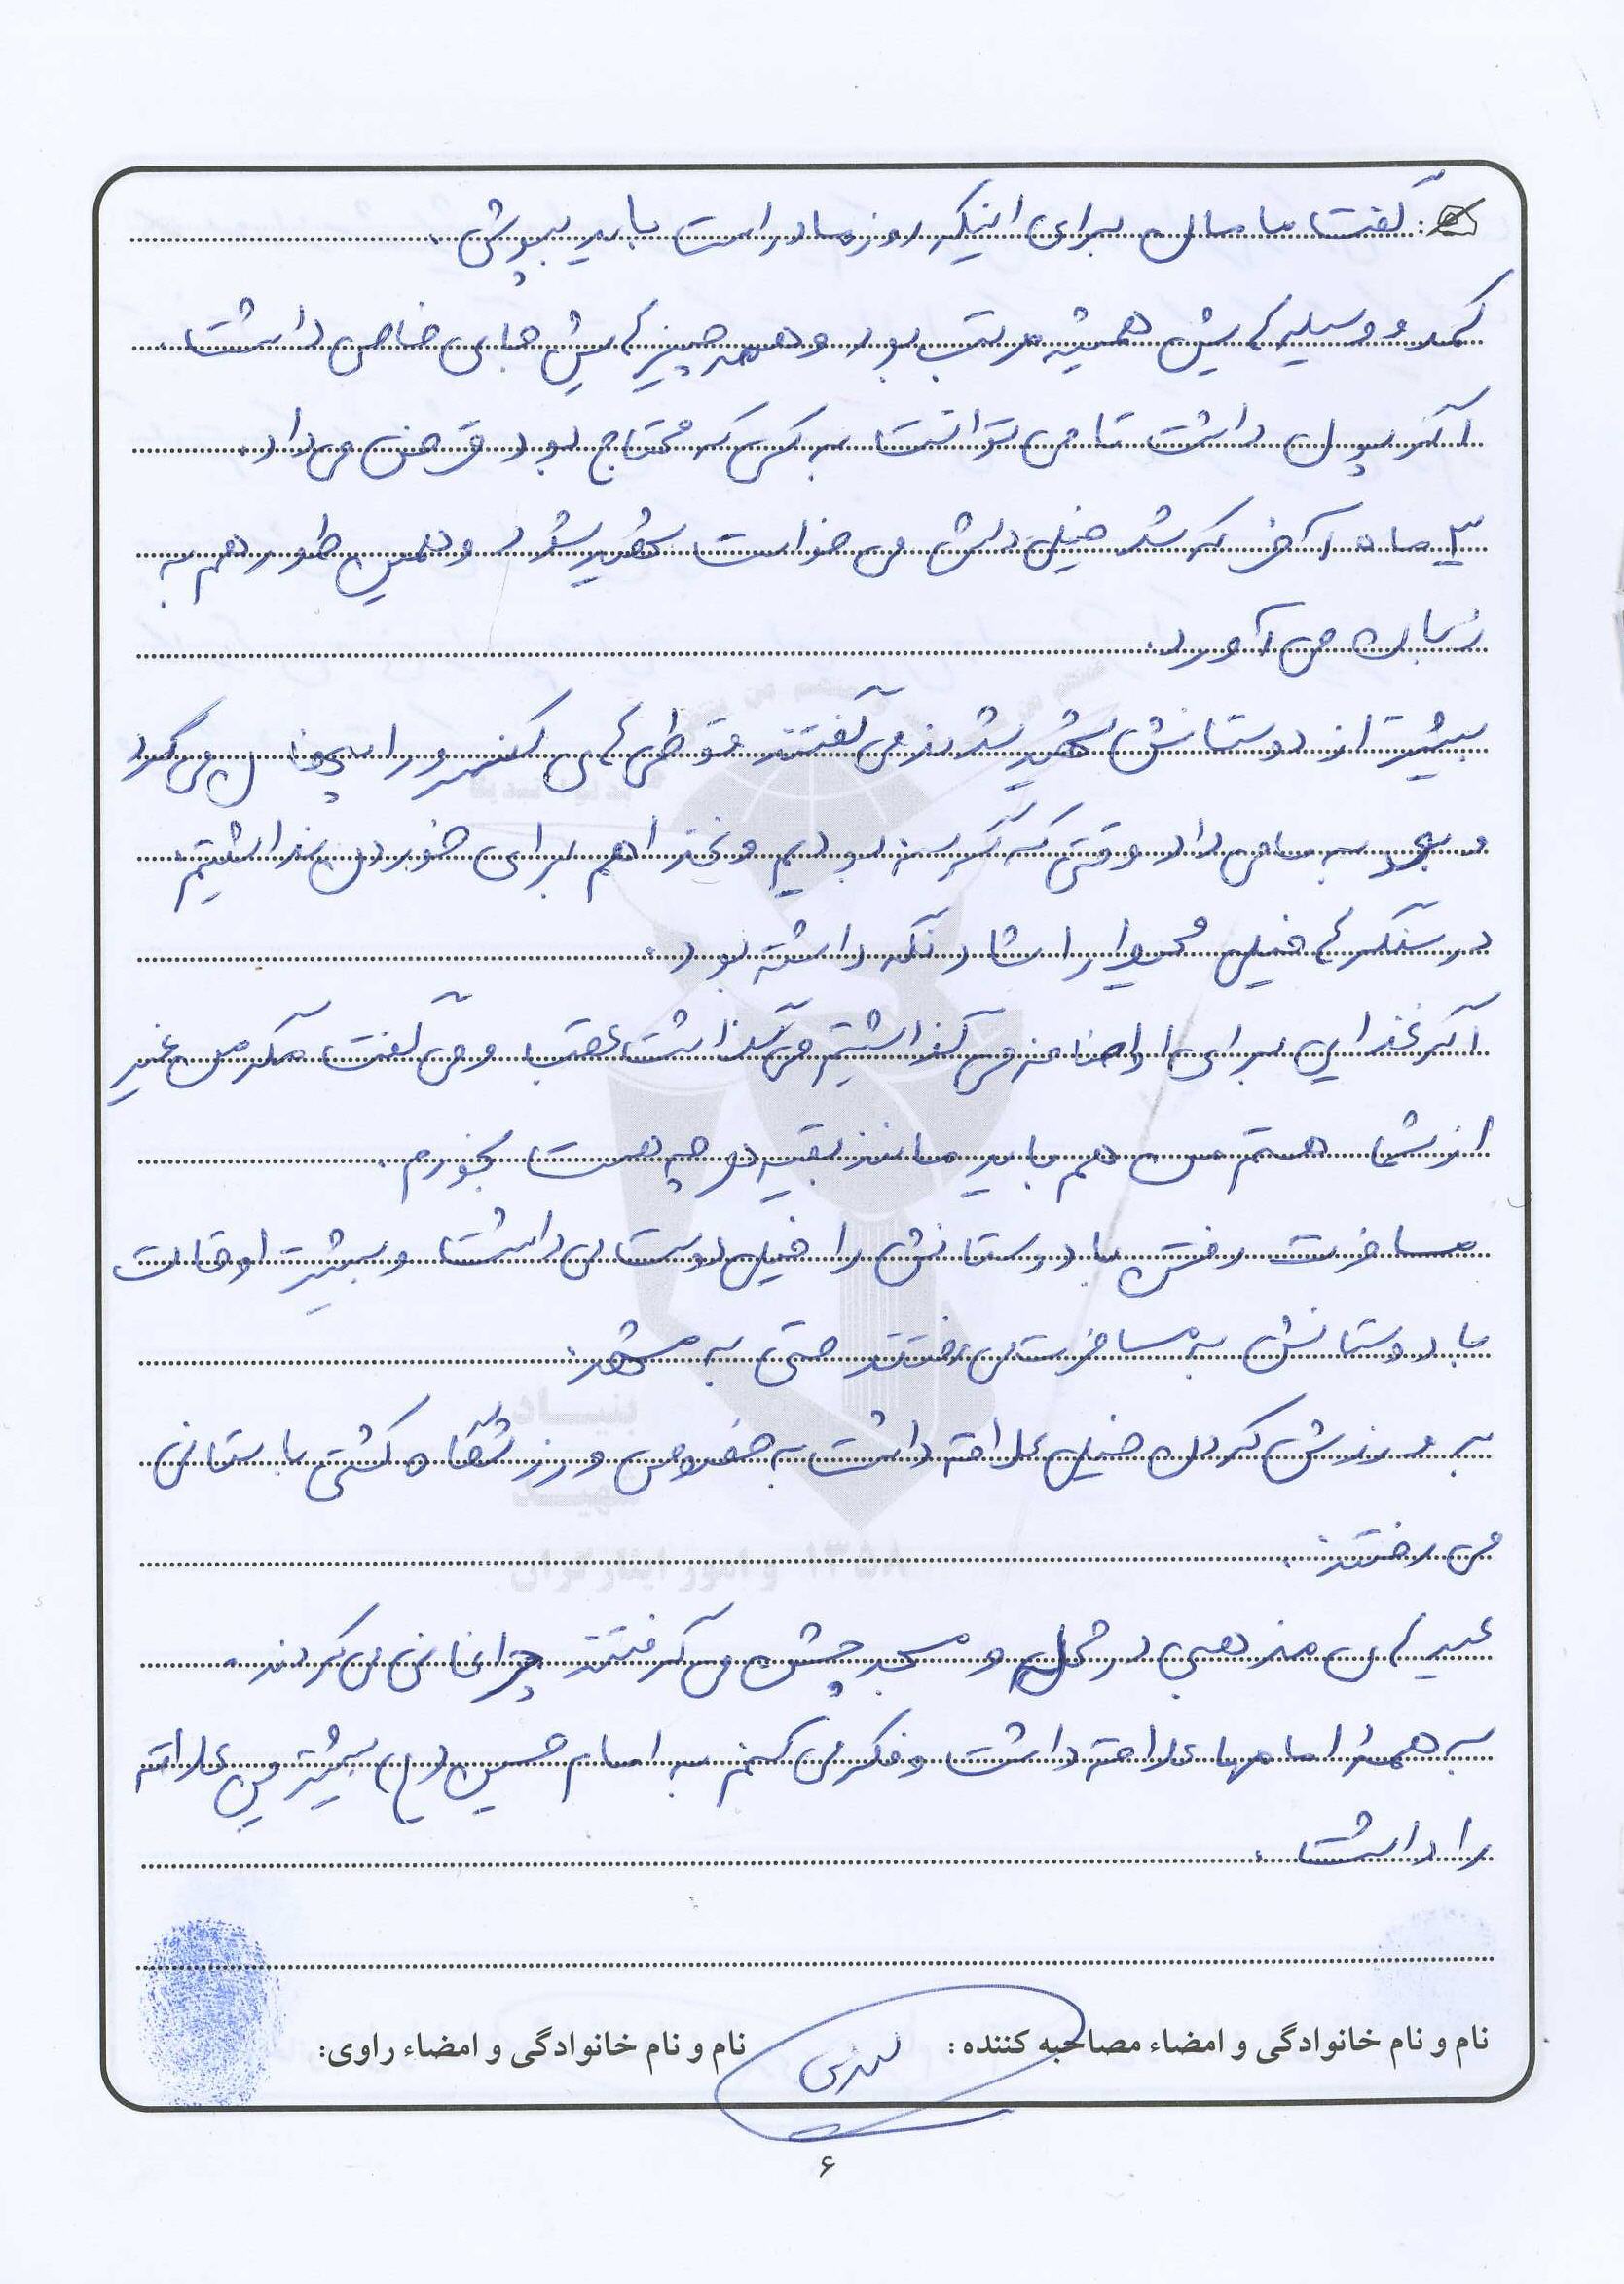 گفت مامان برای اینکه روز مادر است باید بپوشی.
کمد و وسیله هایش همیشه مرتب بود و همه چیزهایش جای خاصی داشت.
اگر پول داشت تا می توانست به کسی که محتاج بود قرض می داد.
۳ ماه آخر که شد خیلی دلش می خواست شهید شود و همین طور هم به
زبان می آورد.
بیشتر از دوستانش شهید شدند می گفتند قوطی های کنسرو را پنهان می کرد
و بعد به ما می داد وقتی که گرسنه بودیم و غذا هم برای خوردن نداشتیم.
در سنگرها خیلی محیط را شاد نگه داشته بود.
اگر غذایی برای او اضافه می گذاشتیم می گذاشت عقب و می گفت مگر من غیر
از شما هستم من هم باید مانند بقیه هر چه هست بخورم.
مسافرت رفتن با دوستانش را خیلی دوست داشت و بیشتر اوقات
با دوستانش به مسافرت می رفتند حتی به مشهد.
به ورزش کردن خیلی علاقه داشت به خصوص ورزشگاه کشتی باستانی
می رفتند.
عیدهای مذهبی در محل و مسجد جشن می گرفتند چراغانی می کردند.
به همهٔ امامها علاقه داشت و فکر می کنم به امام حسین (ع) بیشترین علاقه
را داشت.
نام و نام خانوادگی و امضاء مصاحبه کننده: نام و نام خانوادگی و امضاء راوی:
۶
بنیاد
شهید
۱۳۵۸ و امور ایثارگران